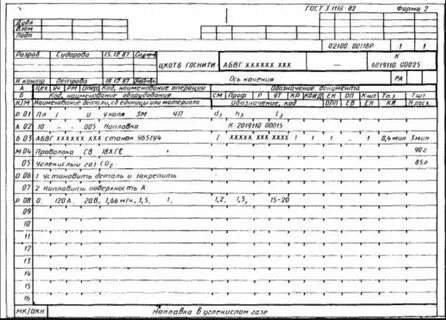 ГОСТ 3.1116-82 Форма 2
Дубл
Взам
Подп
02100.00118Р 1 1
Разраб Сидорова 15.12.87
ЦКОТБ ГОСНИТИ АБВГ ХХХХХХ.ХХХ К
6019110 00025
Н контр Петрова 18.12.87 Ось качения РА
А Цех Уч РМ Опер Код, наименование операции Обозначение документа
Б Код, наименование оборудования СМ Проф Р УТ КР КОИД ЕН ОП Кшт Тпз Тшт
К/М Наименование детали, св единицы или материала Обозначение, код ОПП ЕВ ЕН КИ Н расх
Р 01 Пл I U Vнапл Sм ЧП dэ hэ lэ
А 02 10 - - 005 Наплавка К 2019110 00015
Б 03 АБВГ ХХХХХХ ХХХ станок 9851У4 АБВГ ХХХХХХ.ХХХ 1 1 1 1 0,4мин 3мин
М 04 Проволока СВ 18ХГС 90г
05 Углекислый газ СО2 85л
О 06 1 Установить деталь и закрепить
07 2 Наплавить поверхность А
Р 08 0, 120А, 20В, 1,66м/ч, 1,5, 1, 1,2, 1,5, 15-20
09
10
11
12
13
14
15
16
МК/ОКН Наплавка в углекислом газе